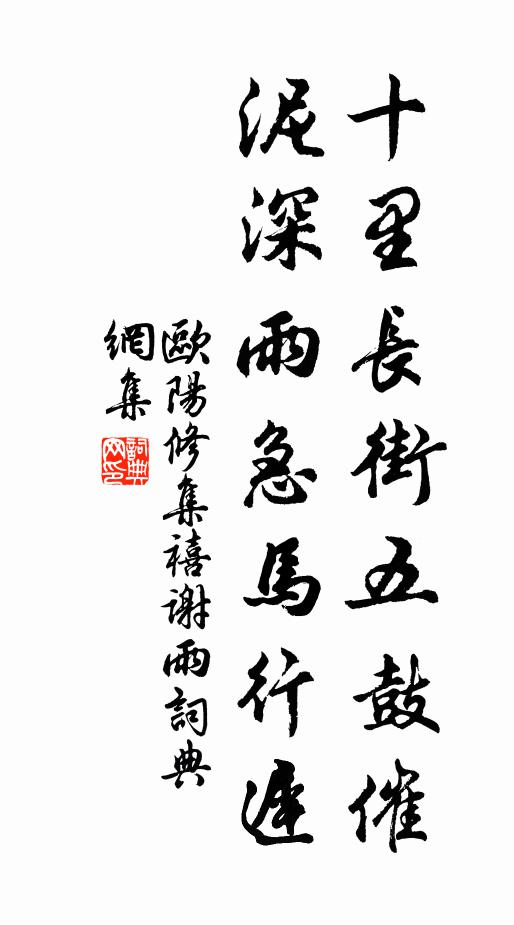 十里長街五鼓催
泥深雨急馬行遲
歐陽修集禧謝雨詞典
網集
詞典
网印